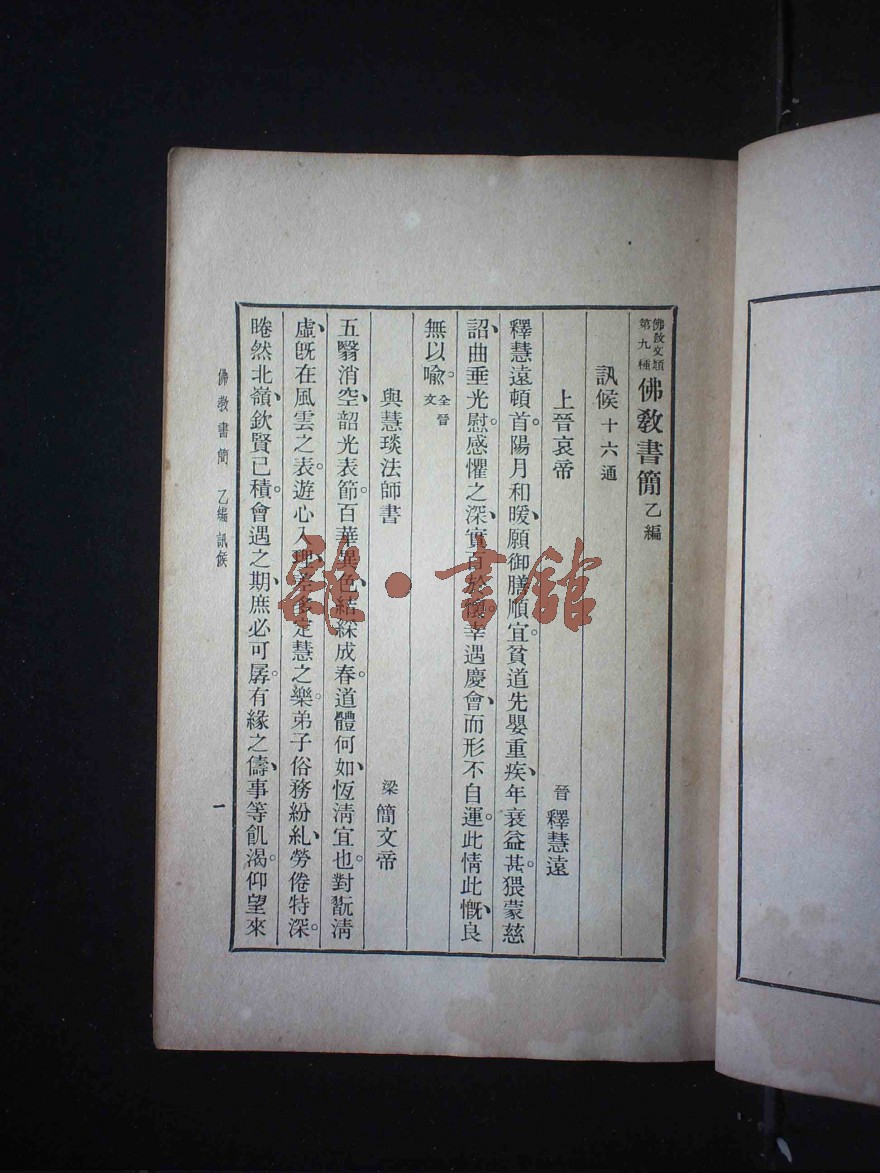 佛敎文類第九種 佛敎書簡 乙編
訊候 十六通
上晉哀帝 晉 釋慧遠
釋慧遠頓首。陽月和暖、願御膳順宜。貧道先嬰重疾、年衰益甚。猥蒙慈
詔、曲垂光慰。感懼之深、實百於懷。幸遇慶會、而形不自運。此情此慨、良
無以喩。全晉文
與慧琰法師書 梁 簡文帝
五翳消空、韶光表節。百華異色、結綵成春。道體何如、恆淸宜也。對翫淸
虛、旣在風雲之表。遊心入理、差多定慧之樂。弟子俗務紛糺、勞倦特深。
睠然北嶺、欽賢已積。會遇之期、庶必可孱。有緣之儔、事等飢渴。仰望來
佛敎書簡 乙編 訊候
一
雜·書館